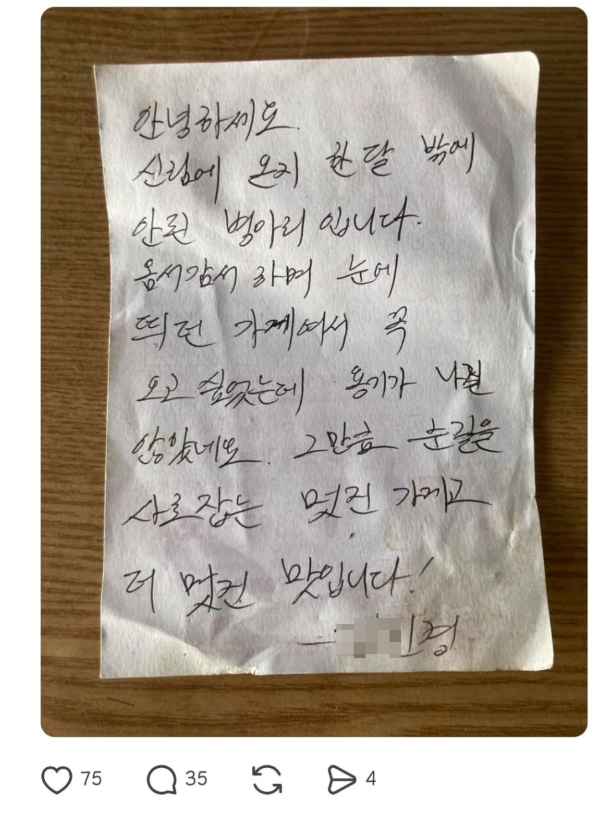 안녕하세요.
신림에 온지 한 달 밖에
안된 병아리 입니다.
옴서감서 하며 눈에
띄던 가게여서 꼭
오고 싶었는데 용기가 나질
않았네요. 그만큼 눈길을
사로잡는 멋진 가게고
더 멋진 맛입니다!
75
35
4